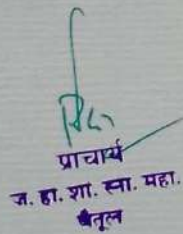 प्राचार्य
ज. हा. शा. स्ना. महा.
बैतूल